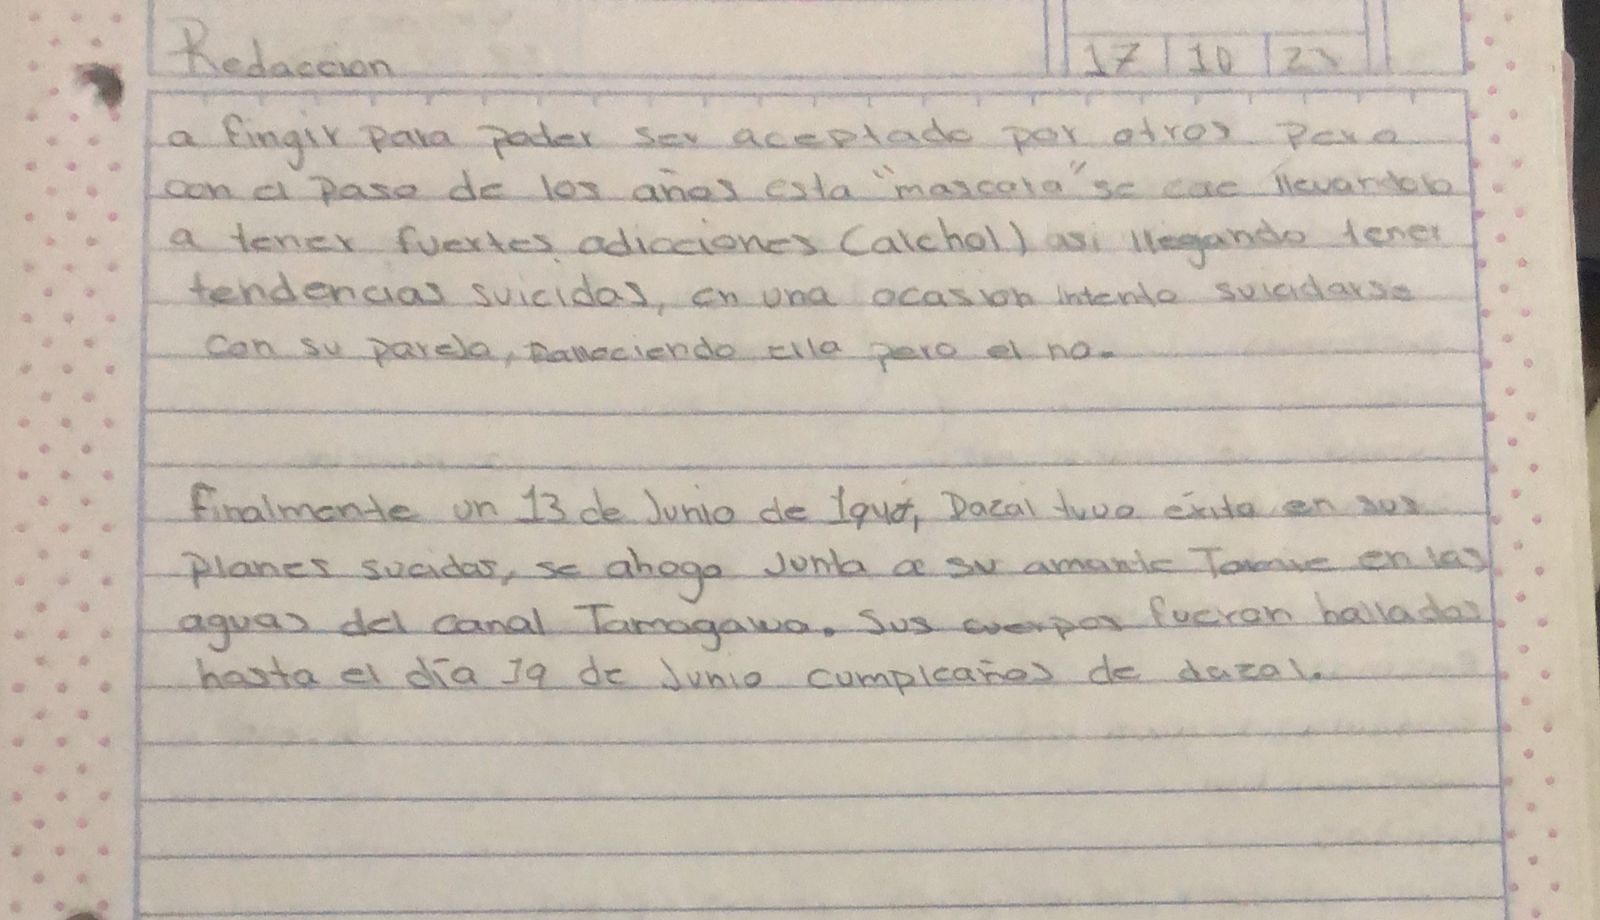 Redaccion
17 10 23
a fingir para poder ser aceptado por otros pero
con el paso de los años esta "mascara" se cae llevandolo
a tener fuertes adicciones (alchol) asi llegando tener
tendencias suicidas, en una ocasion intento suicidarse
con su pareja, falleciendo ella pero el no.
Finalmente un 13 de Junio de Dazai tuvo éxito en sus
planes sucidas, se ahogo Junto a su amante en las
aguas del canal Tamagawa. Sus cuerpos fueron hallados
hasta el día 19 de Junio cumpleaños de dazai.